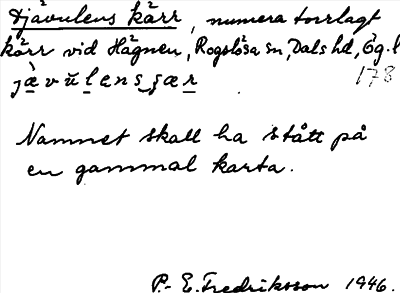 Djävulens kärr, numera torrlagt
kärr vid Hägnen, Rogslösa sn, Dals hd, Ög. l
178
jævulens ɕær
Namnet skall ha stått på
en gammal karta.
P.-E. Fredriksson 1946.